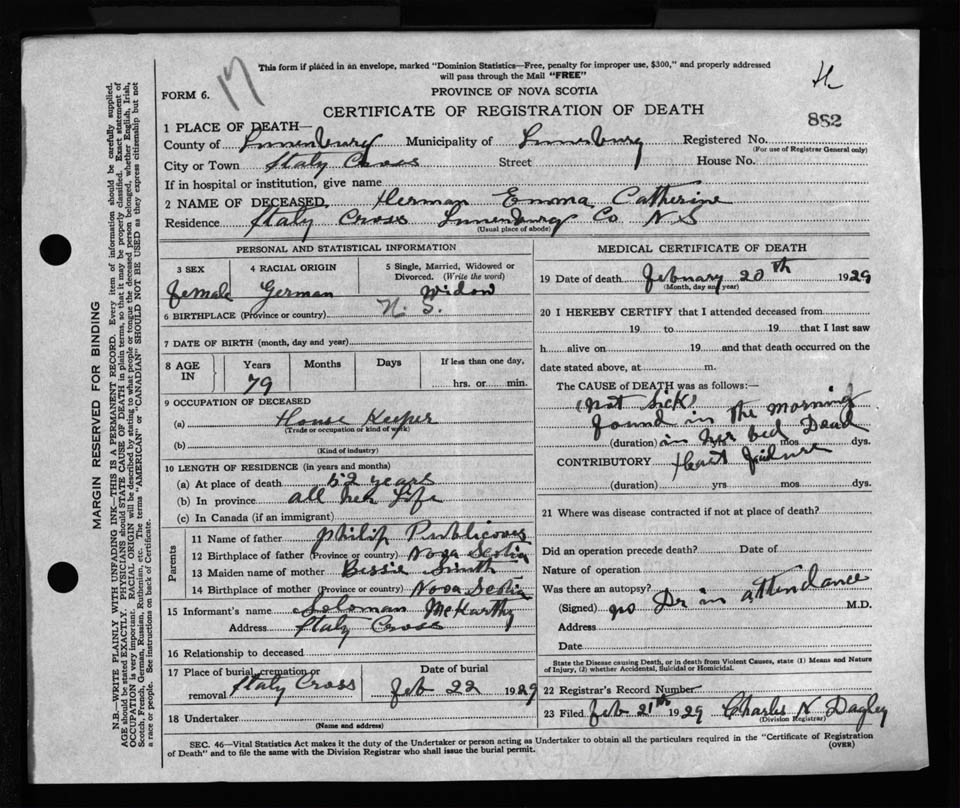 This form if placed in an envelope, marked "Dominion Statistics—Free, penalty for improper use, $300," and properly addressed
will pass through the Mail "FREE"
17
FORM 6.
PROVINCE OF NOVA SCOTIA
CERTIFICATE OF REGISTRATION OF DEATH
882
1 PLACE OF DEATH—
County of Lunenburg Municipality of Lunenburg Registered No.
(For use of Registrar General only)
City or Town Italy Cross Street House No.
If in hospital or institution, give name
2 NAME OF DECEASED. Herman Emma Catherine
Residence Italy Cross Lunenburg Co N S
(Usual place of abode)
PERSONAL AND STATISTICAL INFORMATION
3 SEX 4 RACIAL ORIGIN 5 Single, Married, Widowed or
Divorced. (Write the word)
female German Widow
6 BIRTHPLACE (Province or country) N. S.
7 DATE OF BIRTH (month, day and year)
8 AGE IN Years Months Days If less than one day,
79 hrs. or min.
9 OCCUPATION OF DECEASED
(a) House Keeper
(Trade or occupation or kind of work)
(b)
(Kind of industry)
10 LENGTH OF RESIDENCE (in years and months)
(a) At place of death 52 years
(b) In province all her Life
(c) In Canada (if an immigrant)
Parents
11 Name of father Philip Publicover
12 Birthplace of father (Province or country) Nova Scotia
13 Maiden name of mother Bessie Smith
14 Birthplace of mother (Province or country) Nova Scotia
15 Informant's name Soloman McKarthy
Address Italy Cross
16 Relationship to deceased
17 Place of burial, cremation or
removal Italy Cross
Date of burial
Feb 22 1929
18 Undertaker
(Name and address)
MEDICAL CERTIFICATE OF DEATH
19 Date of death february 20th 1929
(Month, day and year)
20 I HEREBY CERTIFY that I attended deceased from
19 to 19 that I last saw
h alive on 19 and that death occurred on the
date stated above, at m.
The CAUSE of DEATH was as follows:—
(Not Sick)
found in the morning
(duration) in her bed Dead mos dys.
CONTRIBUTORY Heart failure
(duration) yrs mos dys.
21 Where was disease contracted if not at place of death?
Did an operation precede death? Date of
Nature of operation
Was there an autopsy?
(Signed) no Dr in attendance M.D.
Address
Date
State the Disease causing Death, or in death from Violent Causes, state (1) Means and Nature
of Injury, (2) whether Accidental, Suicidal or Homicidal.
22 Registrar's Record Number
23 Filed Feb 21st 1929 Charles N Dagley
(Division Registrar)
SEC. 46—Vital Statistics Act makes it the duty of the Undertaker or person acting as Undertaker to obtain all the particulars required in the "Certificate of Registration
of Death" and to file the same with the Division Registrar who shall issue the burial permit.
(OVER)
MARGIN RESERVED FOR BINDING
N.B.—WRITE PLAINLY WITH UNFADING INK—THIS IS A PERMANENT RECORD. Every item of information should be carefully supplied.
AGE should be stated EXACTLY. PHYSICIANS should STATE CAUSE OF DEATH in plain terms, so that it may be properly classified. Exact statement of
OCCUPATION is very important. RACIAL ORIGIN will be described by stating to what people or tongue the deceased person belonged, whether English, Irish,
Scotch, French, German, Russian, Ruthenian, etc. The terms "AMERICAN" or "CANADIAN" SHOULD NOT BE USED as they express citizenship but not
a race or people. See instructions on back of Certificate.